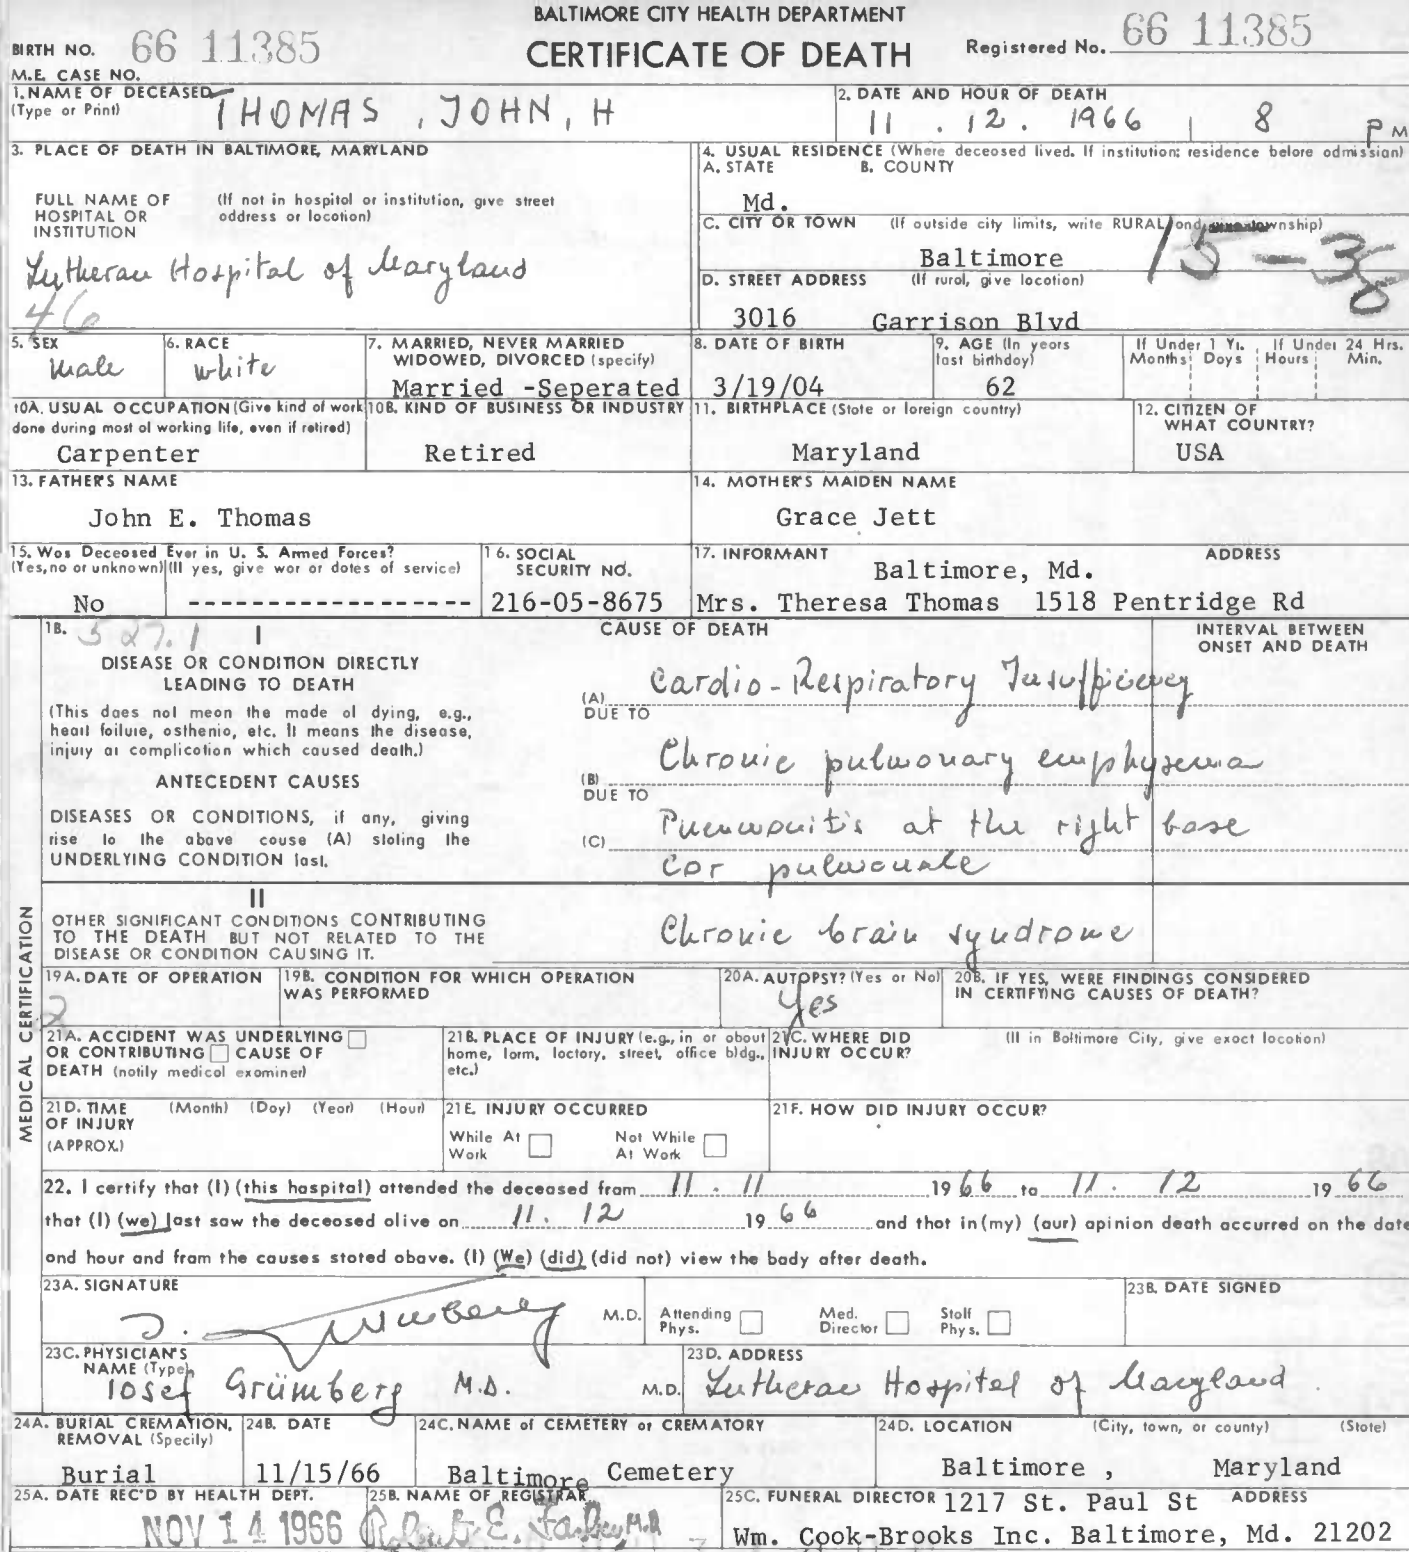 BALTIMORE CITY HEALTH DEPARTMENT
CERTIFICATE OF DEATH
BIRTH NO. 66 11385
Registered No. 66 11385
M.E. CASE NO.
1. NAME OF DECEASED (Type or Print)
THOMAS, JOHN, H
2. DATE AND HOUR OF DEATH
11 . 12 . 1966 | 8 P M
3. PLACE OF DEATH IN BALTIMORE, MARYLAND
FULL NAME OF HOSPITAL OR INSTITUTION (If not in hospital or institution, give street address or location)
Lutheran Hospital of Maryland
46
4. USUAL RESIDENCE (Where deceased lived. If institution; residence before admission)
A. STATE B. COUNTY
Md.
C. CITY OR TOWN (If outside city limits, write RURAL and township)
Baltimore
15-38
D. STREET ADDRESS (If rural, give location)
3016 Garrison Blvd
5. SEX
male
6. RACE
white
7. MARRIED, NEVER MARRIED WIDOWED, DIVORCED (specify)
Married -Seperated
8. DATE OF BIRTH
3/19/04
9. AGE (In years last birthday)
62
If Under 1 Yr. Months Days
If Under 24 Hrs. Hours Min.
10A. USUAL OCCUPATION (Give kind of work done during most of working life, even if retired)
Carpenter
10B. KIND OF BUSINESS OR INDUSTRY
Retired
11. BIRTHPLACE (State or foreign country)
Maryland
12. CITIZEN OF WHAT COUNTRY?
USA
13. FATHER'S NAME
John E. Thomas
14. MOTHER'S MAIDEN NAME
Grace Jett
15. Was Deceased Ever in U. S. Armed Forces?
(Yes, no or unknown) (If yes, give war or dates of service)
No ------------------
16. SOCIAL SECURITY NO.
216-05-8675
17. INFORMANT ADDRESS
Baltimore, Md.
Mrs. Theresa Thomas 1518 Pentridge Rd
18. 527.1 I
CAUSE OF DEATH
INTERVAL BETWEEN ONSET AND DEATH
DISEASE OR CONDITION DIRECTLY LEADING TO DEATH
(This does not mean the mode of dying, e.g., heart failure, asthenia, etc. It means the disease, injury or complication which caused death.)
(A) Cardio-Respiratory Insufficiency
DUE TO
ANTECEDENT CAUSES
DISEASES OR CONDITIONS, if any, giving rise to the above cause (A) stating the UNDERLYING CONDITION last.
(B) Chronic pulmonary emphysema
DUE TO
(C) Pneumonitis at the right base
Cor pulmonale
II
OTHER SIGNIFICANT CONDITIONS CONTRIBUTING TO THE DEATH BUT NOT RELATED TO THE DISEASE OR CONDITION CAUSING IT.
Chronic brain syndrome
MEDICAL CERTIFICATION
19A. DATE OF OPERATION
2
19B. CONDITION FOR WHICH OPERATION WAS PERFORMED
20A. AUTOPSY? (Yes or No)
Yes
20B. IF YES, WERE FINDINGS CONSIDERED IN CERTIFYING CAUSES OF DEATH?
21A. ACCIDENT WAS UNDERLYING OR CONTRIBUTING CAUSE OF DEATH (notify medical examiner)
21B. PLACE OF INJURY (e.g., in or about home, farm, factory, street, office bldg., etc.)
21C. WHERE DID INJURY OCCUR? (If in Baltimore City, give exact location)
21D. TIME OF INJURY (APPROX.) (Month) (Day) (Year) (Hour)
21E. INJURY OCCURRED
While At Work Not While At Work
21F. HOW DID INJURY OCCUR?
22. I certify that (I) (this hospital) attended the deceased from 11 . 11 1966 to 11 . 12 1966
that (I) (we) last saw the deceased alive on 11 . 12 1966 and that in (my) (our) opinion death occurred on the date
and hour and from the causes stated above. (I) (We) (did) (did not) view the body after death.
23A. SIGNATURE
M.D. Attending Phys. Med. Director Staff Phys.
23B. DATE SIGNED
23C. PHYSICIAN'S NAME (Type)
Iosef Grümberg M.D. M.D.
23D. ADDRESS
Lutheran Hospital of Maryland
24A. BURIAL CREMATION, REMOVAL (Specify)
Burial
24B. DATE
11/15/66
24C. NAME of CEMETERY or CREMATORY
Baltimore Cemetery
24D. LOCATION (City, town, or county) (State)
Baltimore , Maryland
25A. DATE REC'D BY HEALTH DEPT.
NOV 14 1966
25B. NAME OF REGISTRAR
Robert E. Farber, M.D.
25C. FUNERAL DIRECTOR ADDRESS
1217 St. Paul St
Wm. Cook-Brooks Inc. Baltimore, Md. 21202